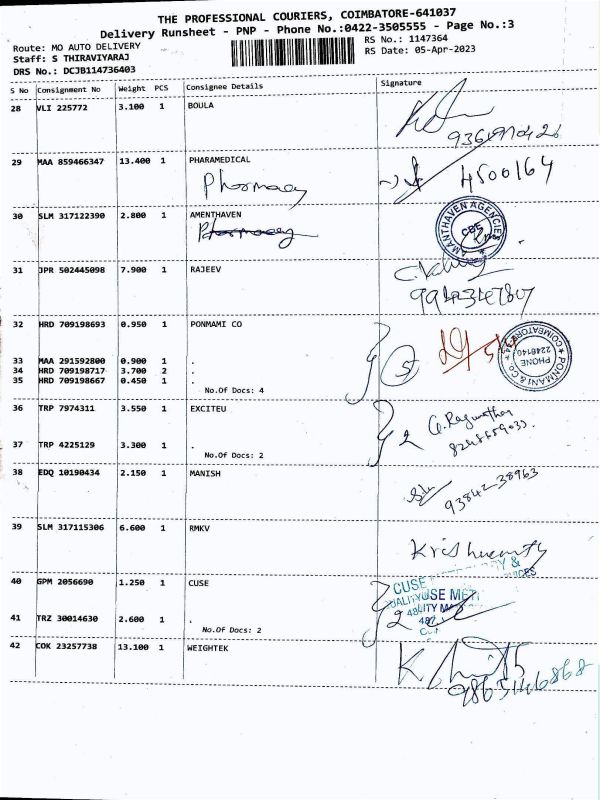 THE PROFESSIONAL COURIERS, COIMBATORE-641037
Delivery Runsheet - PNP - Phone No.:0422-3505555 - Page No.:3
Route: MO AUTO DELIVERY
RS No.: 1147364
Staff: S THIRAVIYARAJ
RS Date: 05-Apr-2023
DRS No.: DCJB114736403
S No Consignment No Weight PCS Consignee Details Signature
28 VLI 225772 3.100 1 BOULA
29 MAA 859466347 13.400 1 PHARAMEDICAL
Pharmacy
4500164
30 SLM 317122390 2.800 1 AMENTHAVEN
Pharmacy
AMANTHAVEN AGENCIES
CBE
31 JPR 502445098 7.900 1 RAJEEV
9942347807
32 HRD 709198693 0.950 1 PONMAMI CO
PONMANI & CO
COIMBATORE
PHONE
2246140
33 MAA 291592800 0.900 1 .
34 HRD 709198717 3.700 2 .
35 HRD 709198667 0.450 1 .
No.Of Docs: 4
5
36 TRP 7974311 3.550 1 EXCITEU
2
37 TRP 4225129 3.300 1 .
No.Of Docs: 2
38 EDQ 10190434 2.150 1 MANISH
93842-38963
39 SLM 317115306 6.600 1 RMKV
40 GPM 2056690 1.250 1 CUSE
CUSE
41 TRZ 30014630 2.600 1 .
No.Of Docs: 2
2
42 COK 23257738 13.100 1 WEIGHTEK